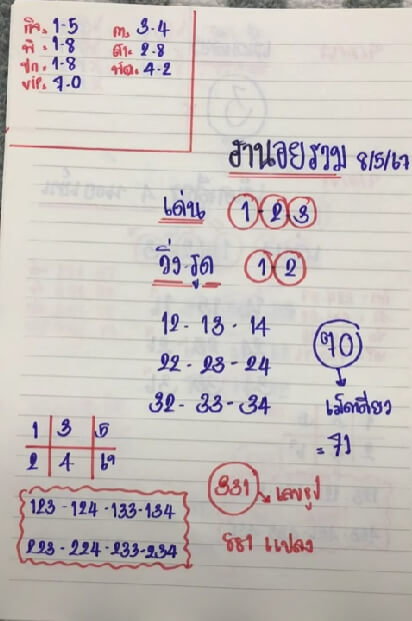 กิจ. 1-5
พิ : 1-8
ปก. 1-8
vip. 7-0
ก. 3-4
สำ. 2-8
พัฒ. 4-2
ฮานอยรวม 8/5/67
เด่น 1-2-3
วิ่ง-รูด 1-2
12-13-14
22-23-24
32-33-34
70
เม็ดเดียว
= 71
1 3 5
2 4 6
123-124-133-134
223-224-233-234
331 เลขธูป
881 แปลง